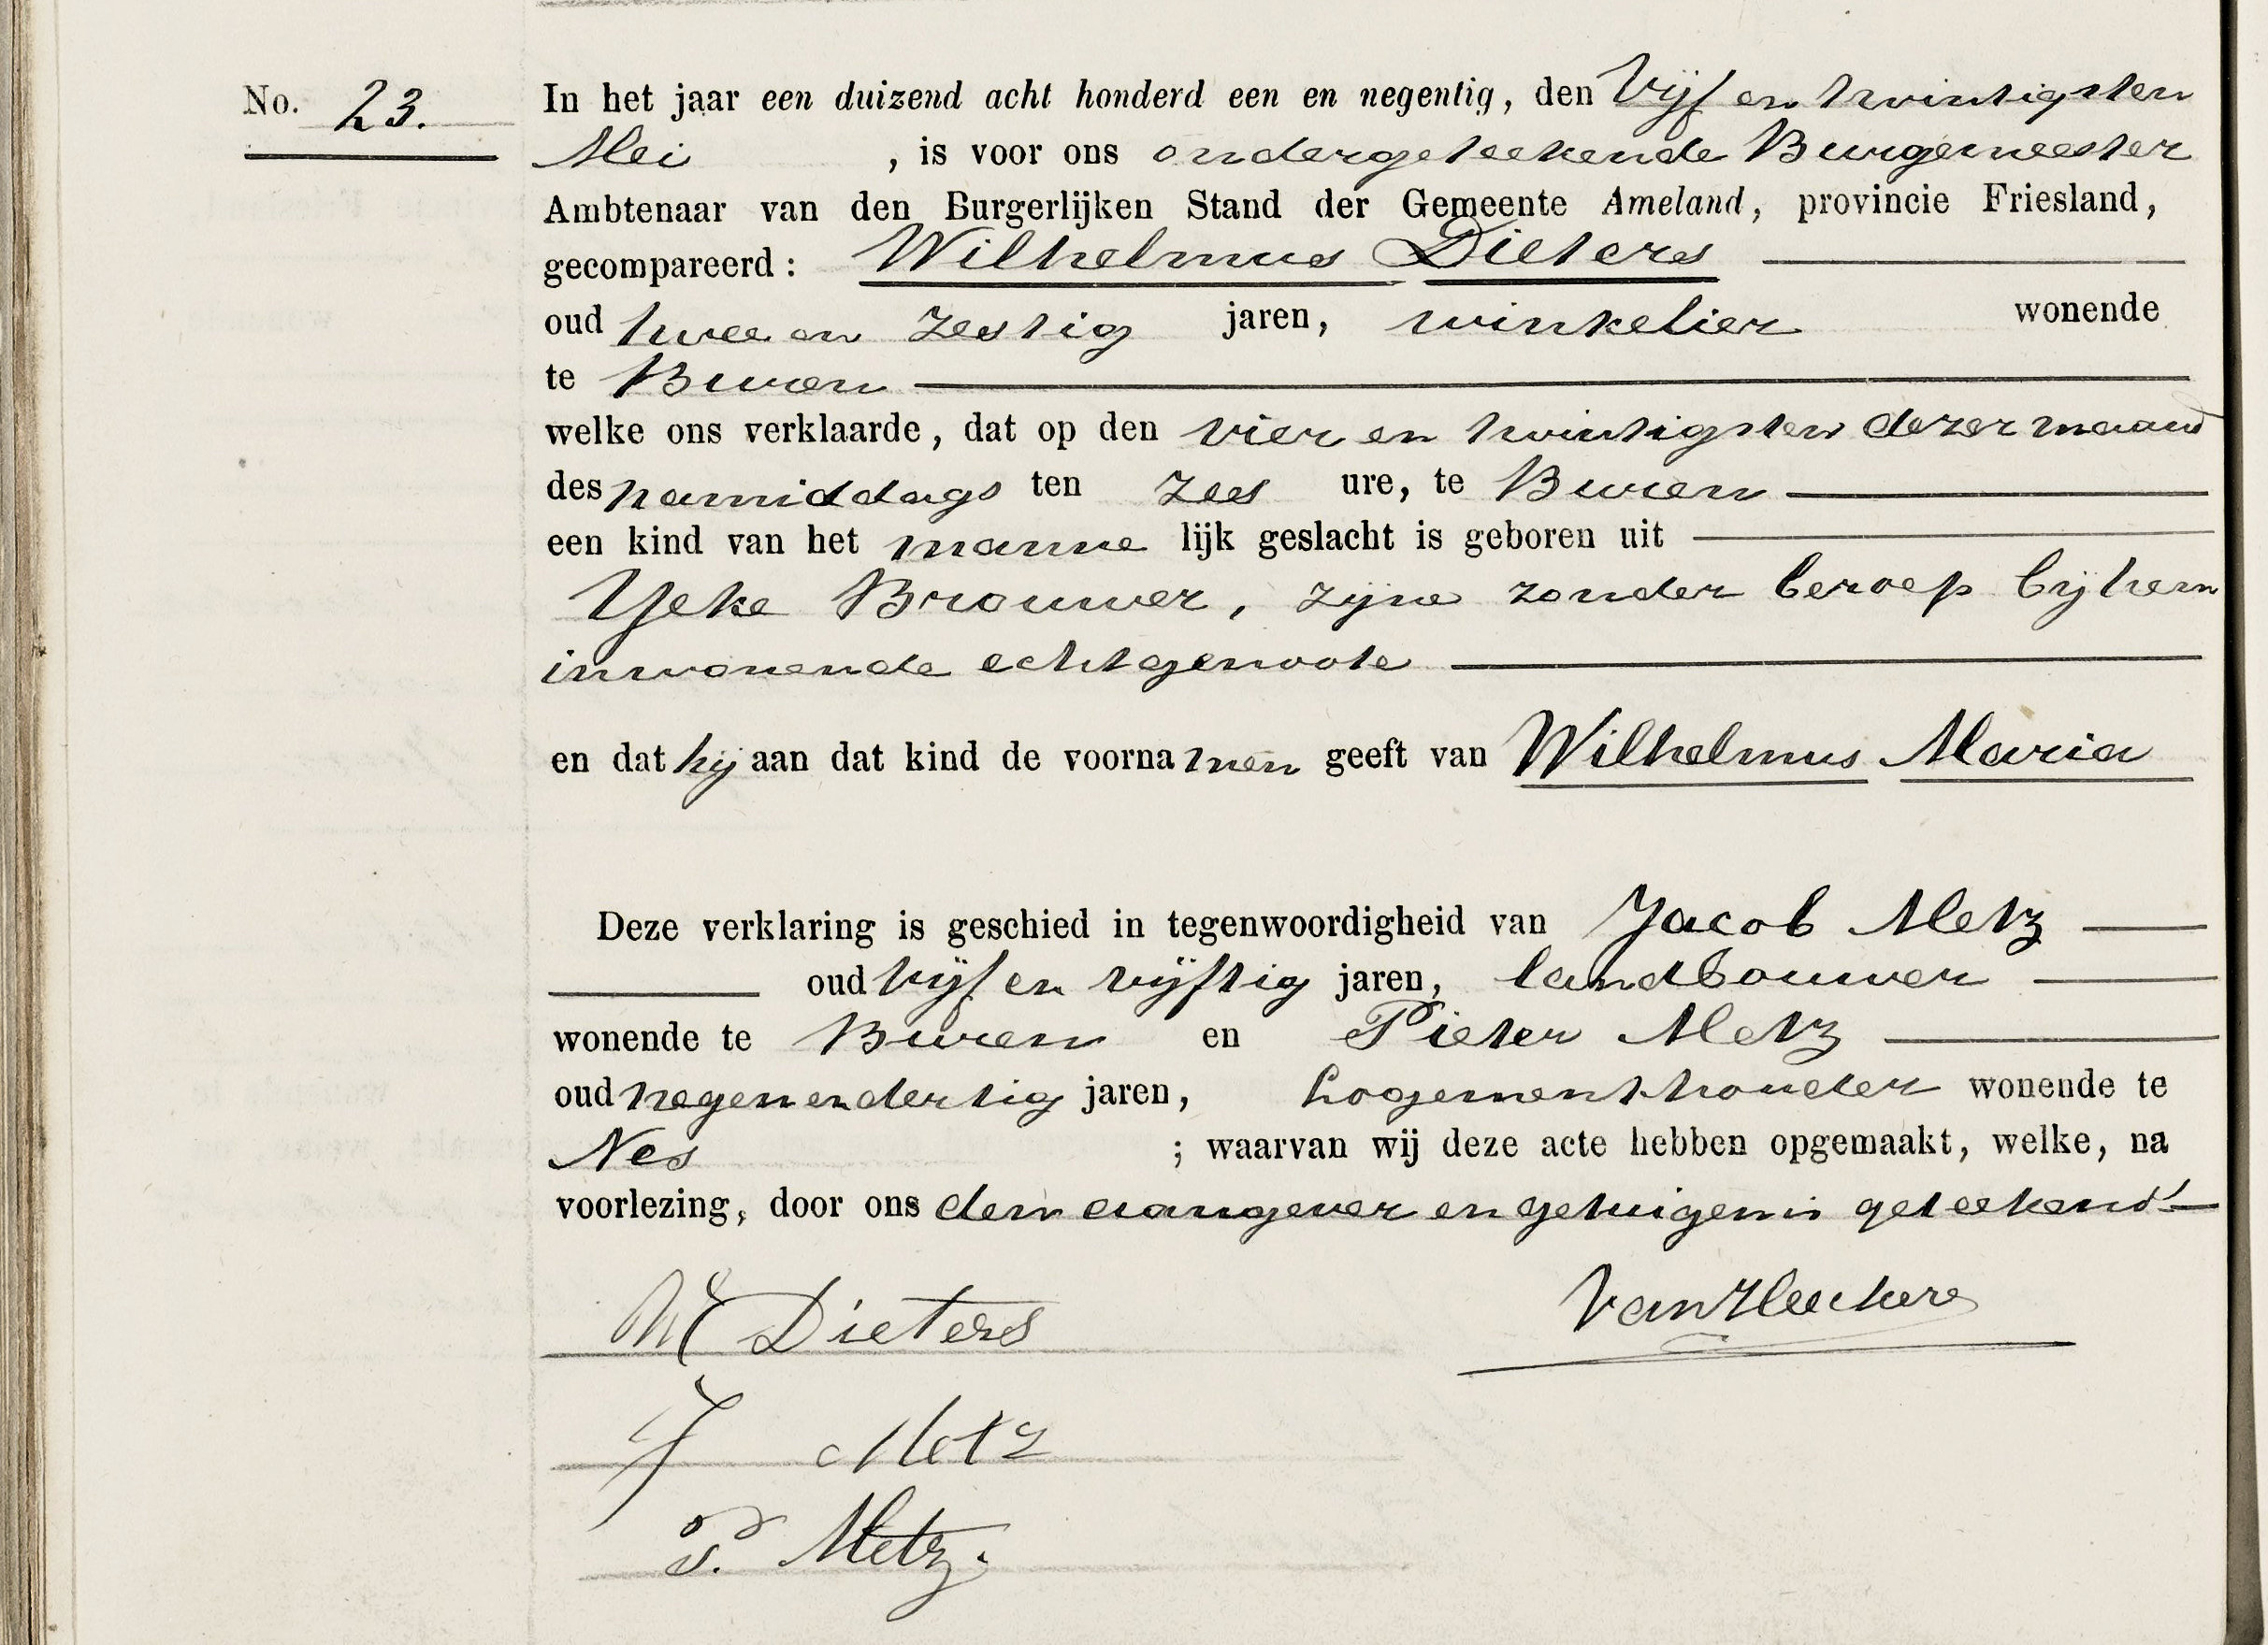 No. 23.
In het jaar een duizend acht honderd een en negentig, den Vijf en twintigsten
Mei , is voor ons ondergeteekende Burgemeester
Ambtenaar van den Burgerlijken Stand der Gemeente Ameland, provincie Friesland,
gecompareerd: Wilhelmus Dieters
oud twee en zestig jaren, winkelier wonende
te Buren
welke ons verklaarde, dat op den vier en twintigsten dezer maand
des namiddags ten zes ure, te Buren
een kind van het manne lijk geslacht is geboren uit
Yeke Brouwer, zijne zonder beroep bij hem
inwonende echtgenoote
en dat hij aan dat kind de voorna men geeft van Wilhelmus Maria
Deze verklaring is geschied in tegenwoordigheid van Jacob Metz
oud vijf en vijftig jaren, landbouwer
wonende te Buren en Pieter Metz
oud negen en dertig jaren, Logementhouder wonende te
Nes ; waarvan wij deze acte hebben opgemaakt, welke, na
voorlezing, door ons den aangever en getuigen is geteekend
W Dieters van Heeckere
J Metz
P. Metz.